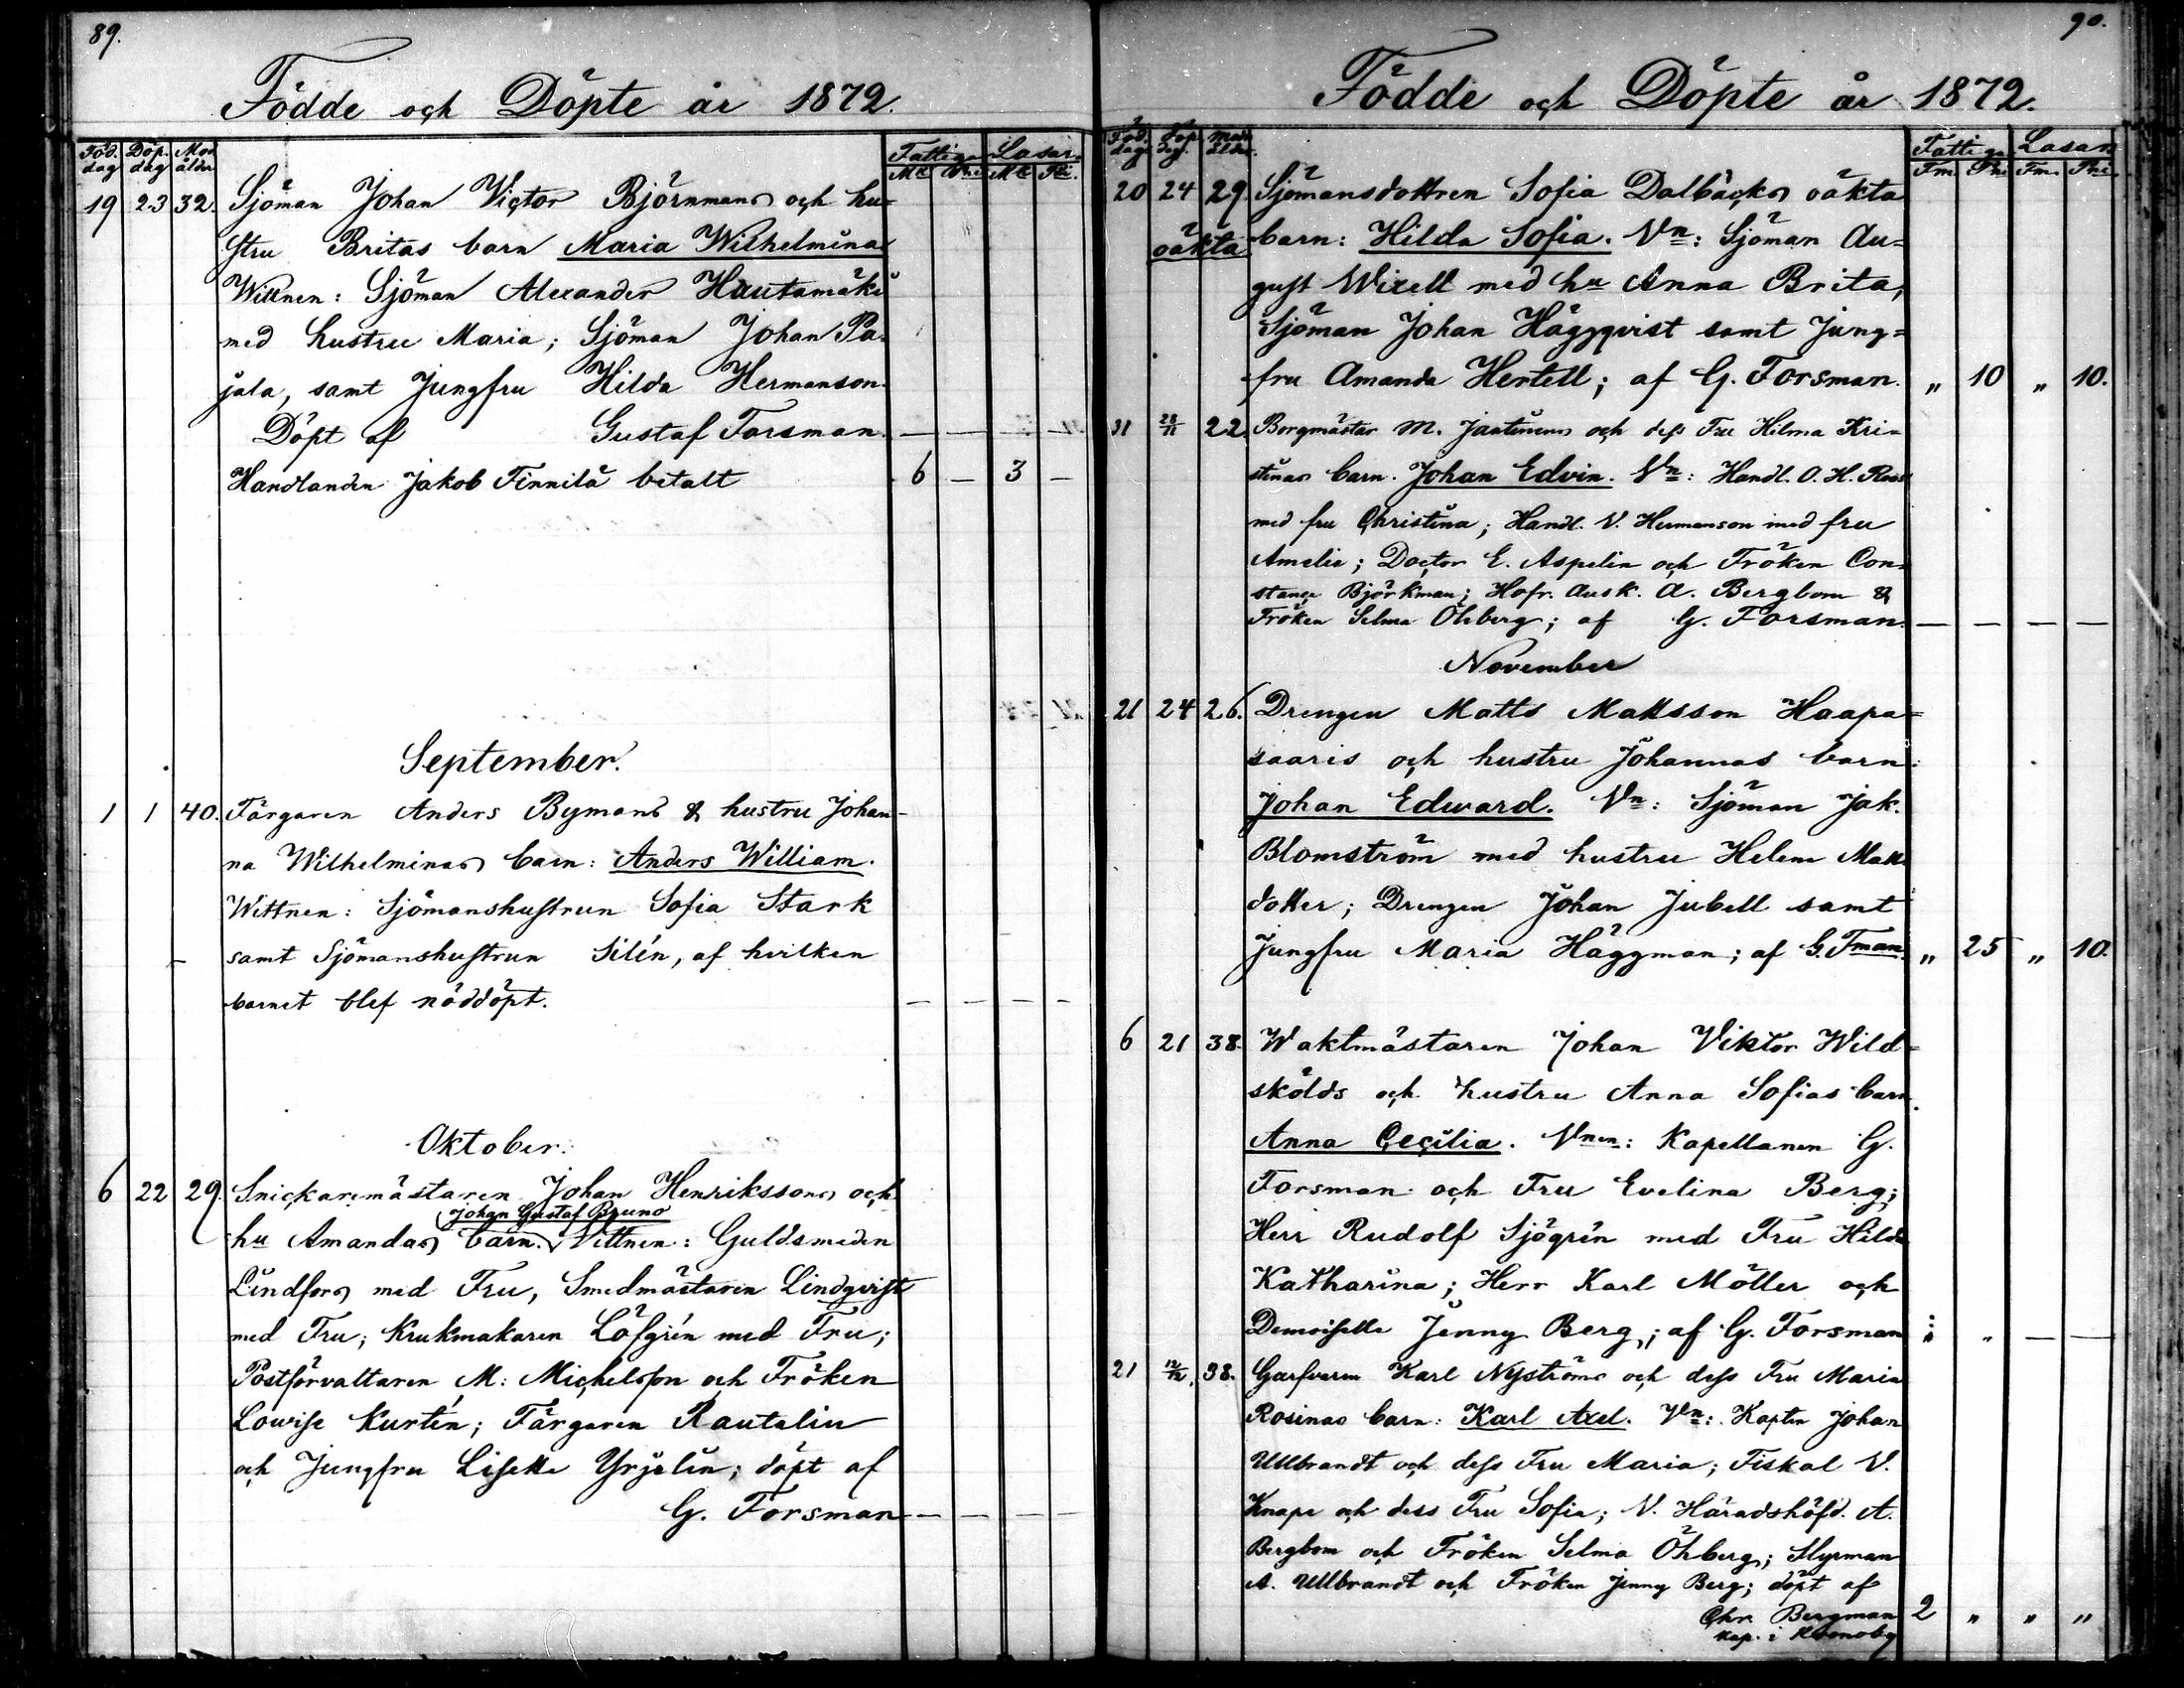 89.
Födde och Döpte år 1872.
Föd. dag Döp. dag Mod. ålder Fattiga Lasar.
Mk Pni Mk Pni
19 23 32. Sjöman Johan Victor Björnmans och hu-
stru Britas barn Maria Wilhelmina
Wittnen: Sjöman Alexander Hautamäki
med hustru Maria; Sjöman Johan Pa-
jala, samt Jungfru Hilda Hermanson.
Döpt af Gustaf Forsman. — — — —
Handlanden Jakob Finnilä betalt 6 — 3 —
September.
1 1 40. Färgaren Anders Bymans & hustru Johan-
na Wilhelminas barn: Anders William.
Wittnen: Sjömanshustrun Sofia Stark
samt Sjömanshustrun Silén, af hvilken
barnet blef nöddöpt. — — — —
Oktober.
6 22 29. Snickaremästaren Johan Henrikssons och
Johan Gustaf Bruno
hu Amandas barn. Vittnen: Guldsmeden
Lindfors med Fru, Smedmästaren Lindqvist
med Fru; Krukmakaren Löfgrén med Fru;
Postförvaltaren M. Michelsson och Fröken
Lovise Kurtén; Färgaren Rautalin
och Jungfru Lisette Yrjelin; döpt af
G. Forsman — — — —
90.
Födde och Döpte år 1872.
Föd. dag Döp. dag. Mod. ålder Fattiga Lasar.
Fm. Pni Fm. Pni.
20 24 29. Sjömansdottren Sofia Dalbäcks oäkta
oäkta barn: Hilda Sofia. Vn: Sjöman Au-
gust Wixell med hu Anna Brita,
Sjöman Johan Häggqvist samt Jung-
fru Amanda Hertell; af G. Forsman. „ 10 „ 10.
31 28/11 22. Borgmästar M. Jaatinens och dess Fru Hilma Kri-
stinas barn. Johan Edvin. Vn: Handl. O. H. Roos
med fru Christina; Handl. V. Hermanson med fru
Amelie; Doctor E. Aspelin och Fröken Con-
stance Björkman; Hofr. Ausk. A. Bergbom &
Fröken Selma Öhberg; af G. Forsman. — — — —
November
21 24 26. Drengen Matts Mattsson Haapa-
saaris och hustru Johannas barn.
Johan Edward. Vn: Sjöman Jak.
Blomström med hustru Helena Matts
dotter; Drengen Johan Jubell samt
Jungfru Maria Häggman; af G. Fman. „ 25 „ 10.
6 21 38. Waktmästaren Johan Viktor Wild-
skölds och hustru Anna Sofias barn
Anna Cecilia. Vnen: Kapellanen G.
Forsman och Fru Evelina Berg;
Herr Rudolf Sjögrén med Fru Hilda
Katharina; Herr Karl Möller och
Demoiselle Jenny Berg; af G. Forsman „ „ — —
21 12/12. 38. Garfvaren Karl Nyströms och dess Fru Maria
Rosinas barn: Karl Axel. Vn: Kapten Johan
Ullbrandt och dess Fru Maria; Fiskal V.
Knape och dess Fru Sofia; V. Häradshöfd. A.
Bergbom och Fröken Selma Öhberg; Styrman
A. Ullbrandt och Fröken Jenny Berg; döpt af
Chr. Bergman 2 „ „ „
Kap. i Kronoby